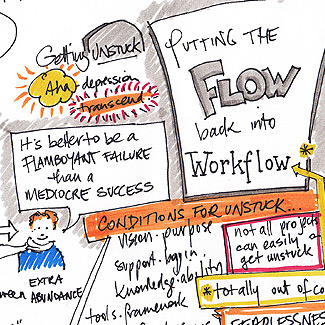 Getting UNSTUCK
Aha
depression
transcend
PUTTING THE
FLOW
back into
Workflow
It's better to be a
FLAMBOYANT FAILURE
than a
MEDIOCRE SUCCESS
EXTRA
ABUNDANCE
CONDITIONS FOR UNSTUCK...
vision · purpose
support · buy in
knowledge · ability
tools · framework
not all projects
can easily
get unstuck
*totally out of co
FEARLESSNESS